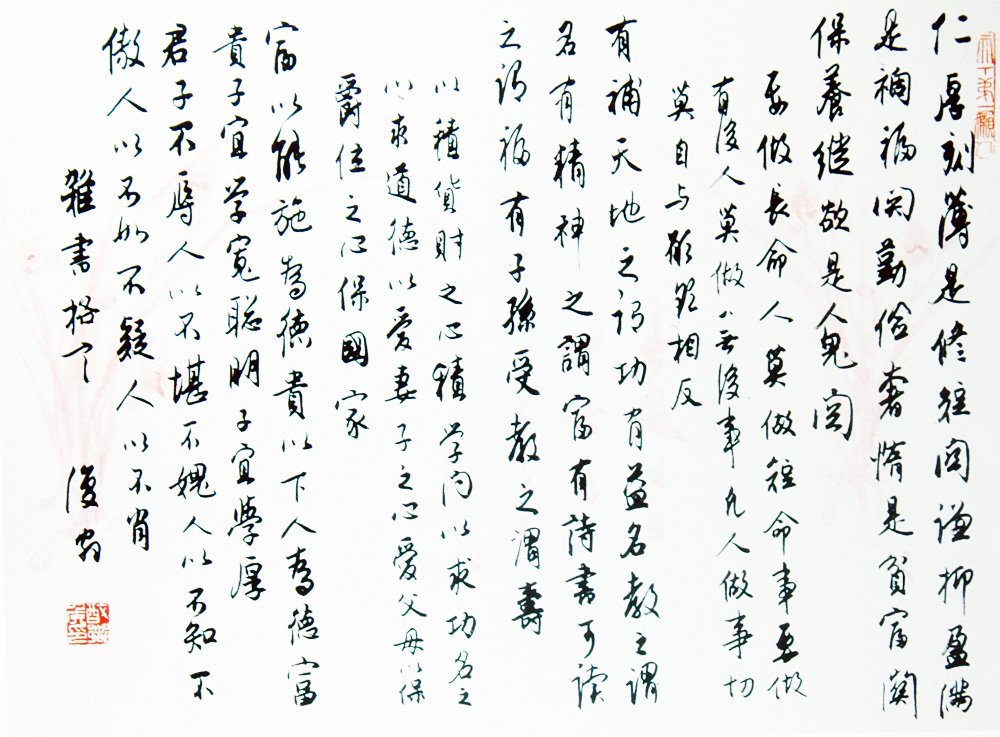 仁厚刻薄是修短関謙抑盈满
是禍福関勤俭奢惰是貧富關
保養縱欲是人鬼関
要做長命人莫做短命事要做
有後人莫做無後事凡人做事切
莫自与願望相反
有補天地之谓功有益名教之謂
名有精神之謂富有詩書可读
之谓福有子孫受教之謂壽
以積貨財之心積学问以求功名之
心求道德以爱妻子之心爱父母以保
爵位之心保國家
富以能施為德貴以下人為德富
貴子宜学寬聪明子宜學厚
君子不辱人以不堪不媿人以不知不
傲人以不如不疑人以不肖
雜書格言 復翁